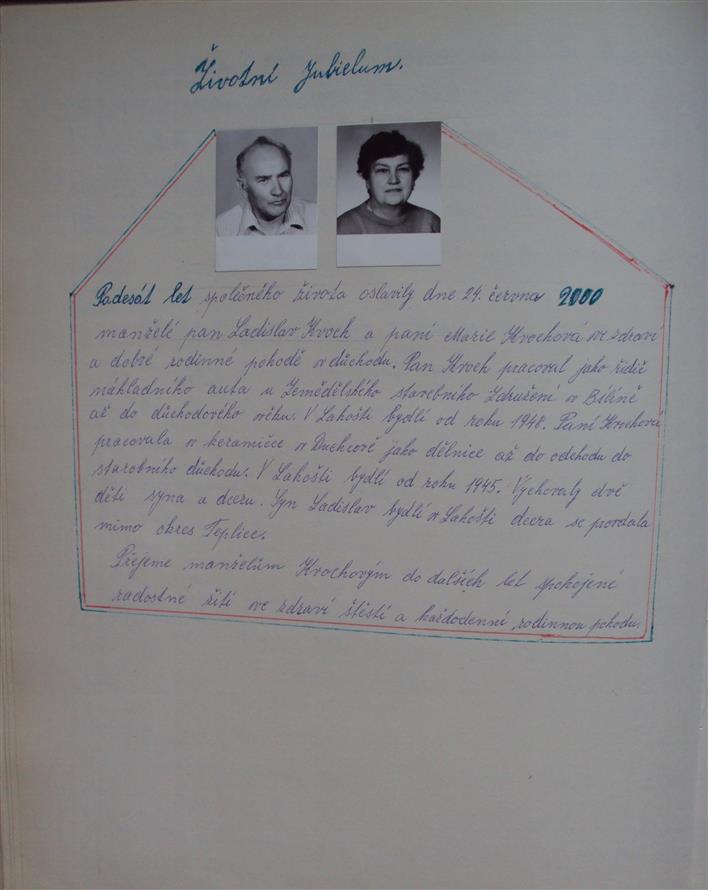 Životní Jubielum.
Padesát let společného života oslavily dne 24. června 2000
manželé pan Ladislav Kroch a paní Marie Krochová ve zdraví
a dobré rodinné pohodě v důchodu. Pan Kroch pracoval jako řidič
nákladného auta u Zemědělského stavebního Združení v Bílině
až do důchodového věku. V Lahošti bydlí od roku 1948. Paní Krochová
pracovala v keramičce v Duchcově jako dělnice až do odchodu do
starobního důchodu. V Lahošti bydlí od roku 1945. Vychovaly dvě
děti syna a dceru. Syn Ladislav bydlí v Lahošti dcera se provdala
mimo okres Teplice.
Přejeme manželům Krochovým do dalších let spokojené
radostné žití ve zdraví štěstí a každodenní rodinnou pohodu.